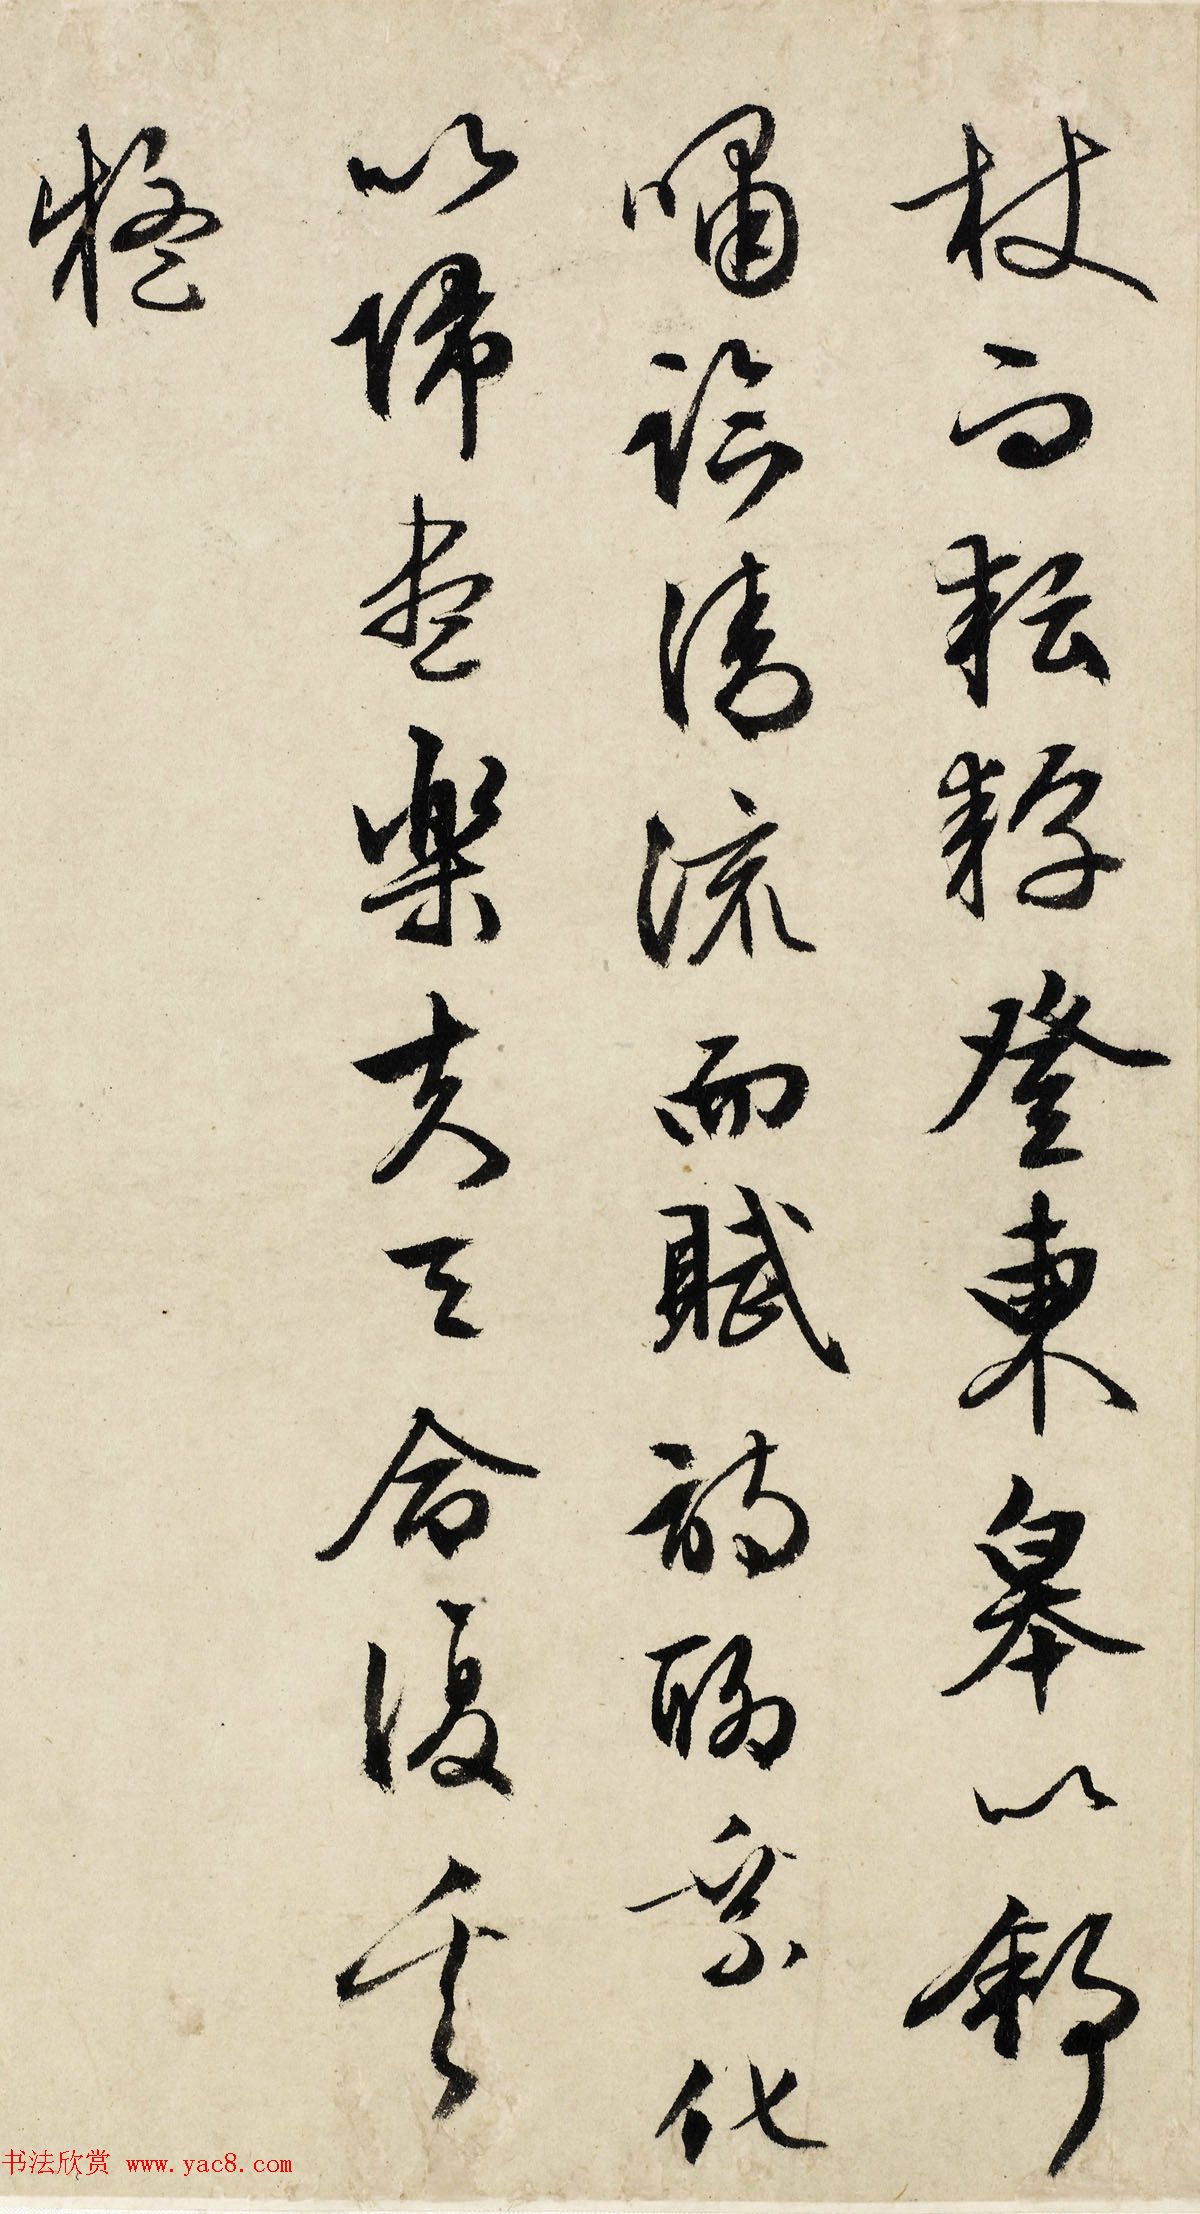 杖而耘耔登東皋以舒
嘯臨清流而賦詩聊乘化
以歸盡樂夫天命復奚
疑
书法欣赏 www.yac8.com